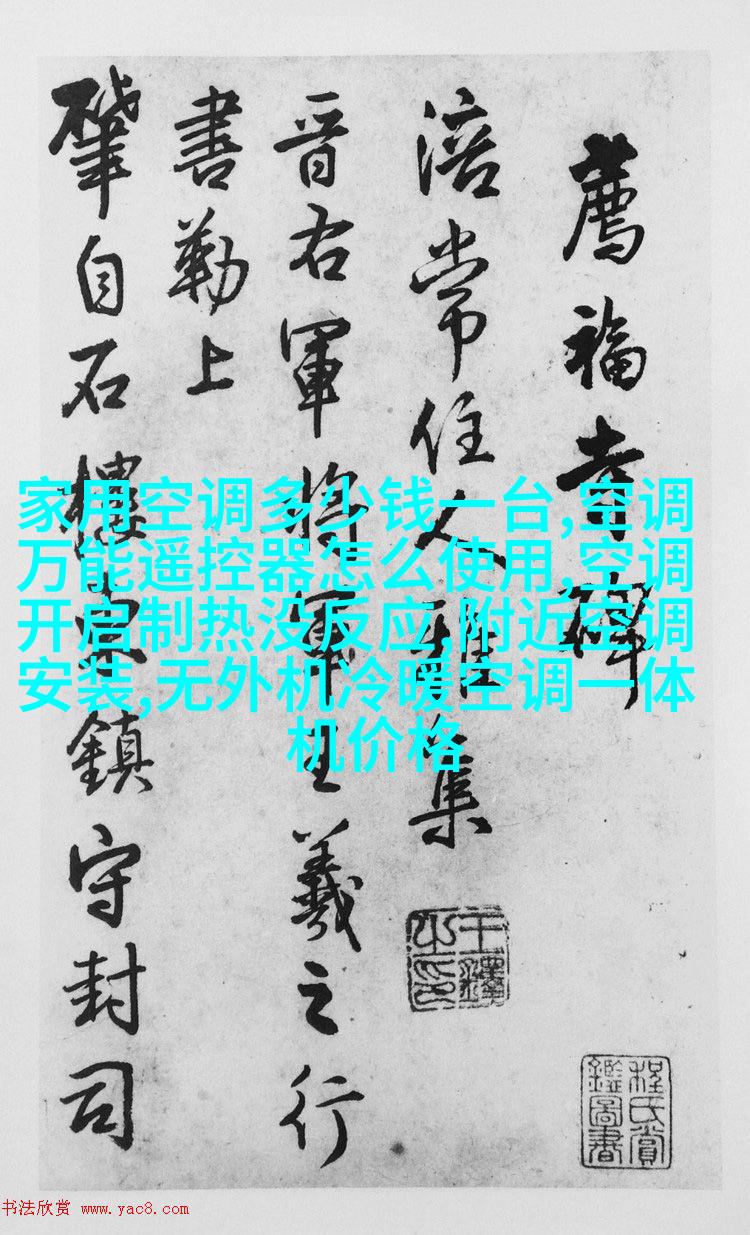 薦福寺碑
涪常住人雅集
晉右軍將軍王羲之行
書勒上
肇自石樓鎮守封司
王鐸之印
程氏賞鑑圖書
家用空调多少钱一台,空调
万能遥控器怎么使用,空调
开启制热没反应,附近空调
安装,无外机冷暖空调一体
机价格
书法欣赏 www.yac8.com